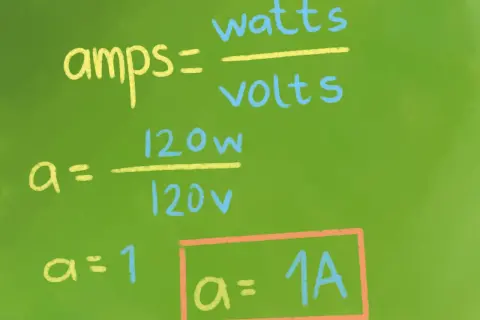 amps = watts
volts
a = 120w
120v
a = 1
a = 1A